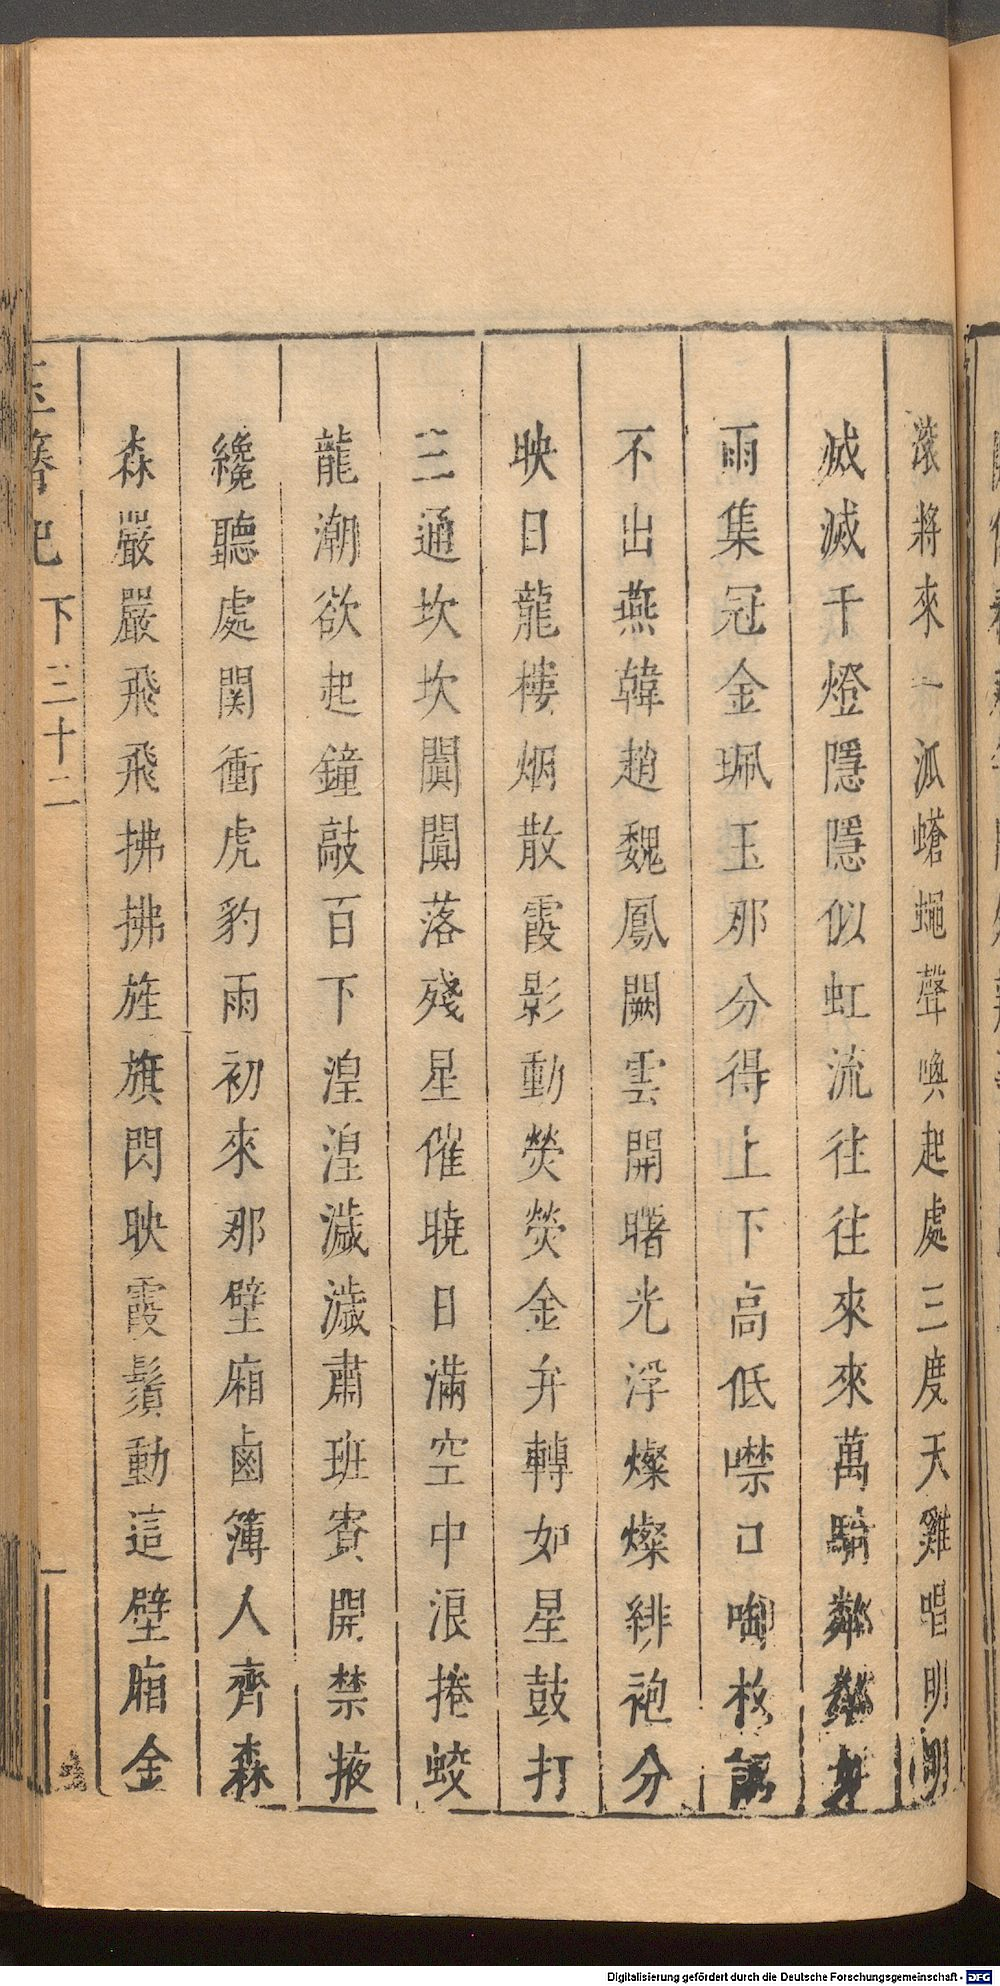 滚將來一派蠅聲喚起處三度天雞唱明明
滅滅千燈隱隱似虹流往往來來萬騎
雨集冠金珮玉那分得上下高低噤口啣枚
不出燕韓趙魏鳳闕雲開曙光浮燦燦緋袍分
映日龍樓烟散霞影動熒熒金弁轉如星鼓打
三通坎坎闐闐落殘星催曉日滿空中浪捲蛟
龍潮欲起鐘敲百下湟湟濊濊肅班賔開禁掖
纔聽處関衝虎豹雨初來那壁廂鹵簿人齊森
森嚴嚴飛飛拂拂旌旗閃映霞鬚動這壁廂金
玉簪記 下 三十二
Digitalisierung gefördert durch die Deutsche Forschungsgemeinschaft - DFG